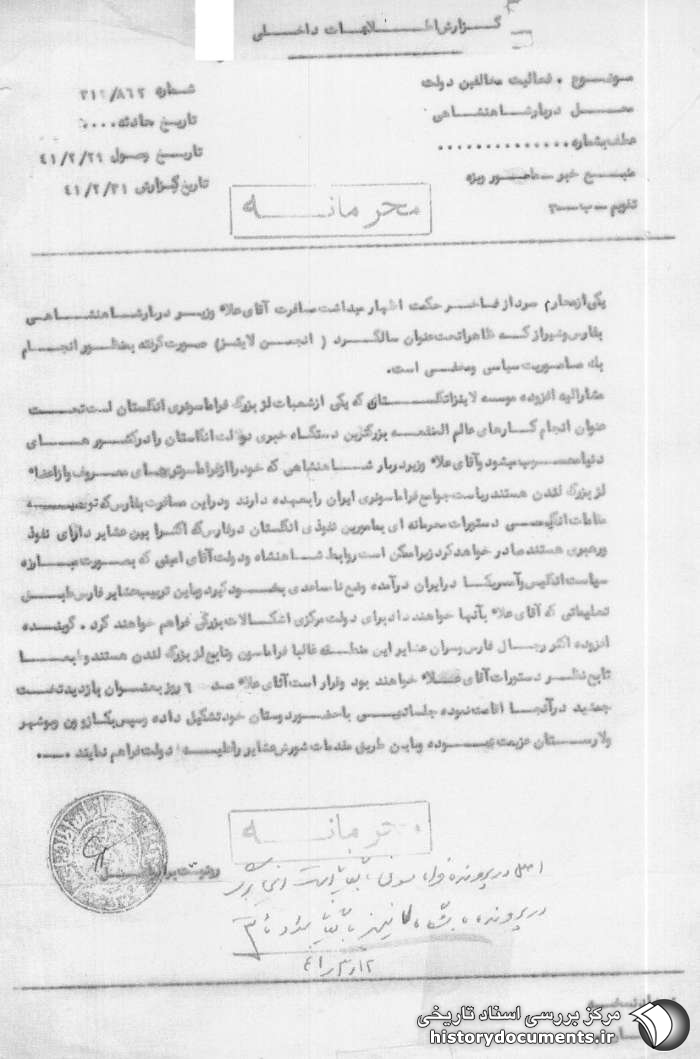 گزارش اطلاعات داخلی
موضوع . فعالیت مخالفین دولت
شماره ۳۱۲/۸۶۲
محل دربار شاهنشاهی
تاریخ حادثه....
عطف بشماره..............
تاریخ وصول ۴۱/۲/۲۹
منبع خبر – مامور ویژه
تاریخ گزارش ۴۱/۲/۳۱
تقویم – ب – ۳
محرمانه
یکی از محارم سردار فاخر حکمت اظهار میداشت مسافرت آقای علاء وزیر دربار شاهنشاهی
بفارس و شیراز که ظاهرا تحت عنوان سالگرد ( انجمن لاینز) صورت گرفته بمنظور انجام
یک ماموریت سیاسی و مخفی است.
مشارالیه افزوده موسسه لاینز انگلستان که یکی از شعبات لژ بزرگ فراماسونری انگلستان است تحت
عنوان انجام کارهای عام المنفعه بزرگترین دستگاه خبری دولت انگلستان را در کشور های
دنیا محسوب میشود و آقای علاء وزیر دربار شاهنشاهی که خود را از فراماسونرهای معروف و از اعضاء
لژ بزرگ لندن هستند ریاست جوامع فراماسونری ایران را بعهده دارند و در این مسافرت بفارس که توصیه
مقامات انگلیسی دستورات محرمانه ای بمامورین نفوذی انگلستان در فارس که اکثرا بین عشایر دارای نفوذ
و رهبری هستند صادر خواهد کرد زیرا ممکن است روابط شاهنشاه و دولت آقای امینی که بصورت مبارزه
سیاست انگلیس و آمریکا در ایران درآمده وضع نامساعدی بخود گیرد و باین ترتیب عشایر فارس طبق
تعلیماتی که آقای علاء بآنها خواهند داد برای دولت مرکزی اشکالات بزرگی فراهم خواهند کرد . گوینده
افزوده اکثر رجال فارس و سران عشایر این منطقه غالبا فراماسون و تابع لژ بزرگ لندن هستند و طبعا
تابع نظر دستورات آقای علاء خواهند بود و قرار است آقای علاء ۶ روز بعنوان بازدید تخت
جمشید در آنجا اقامت نموده جلساتی با حضور دوستان خود تشکیل داده و سپس بکازرون و بوشهر
و لارستان عزیمت نموده و باین طریق مقدمات شورش عشایر را علیه دولت فراهم نمایند ....
محرمانه
رونوشت برابر اصل
اصل در پرونده فراماسونی بایگانی است
در پرونده
۴۱/۳/۱۲
مرکز بررسی اسناد تاریخی
historydocuments.ir